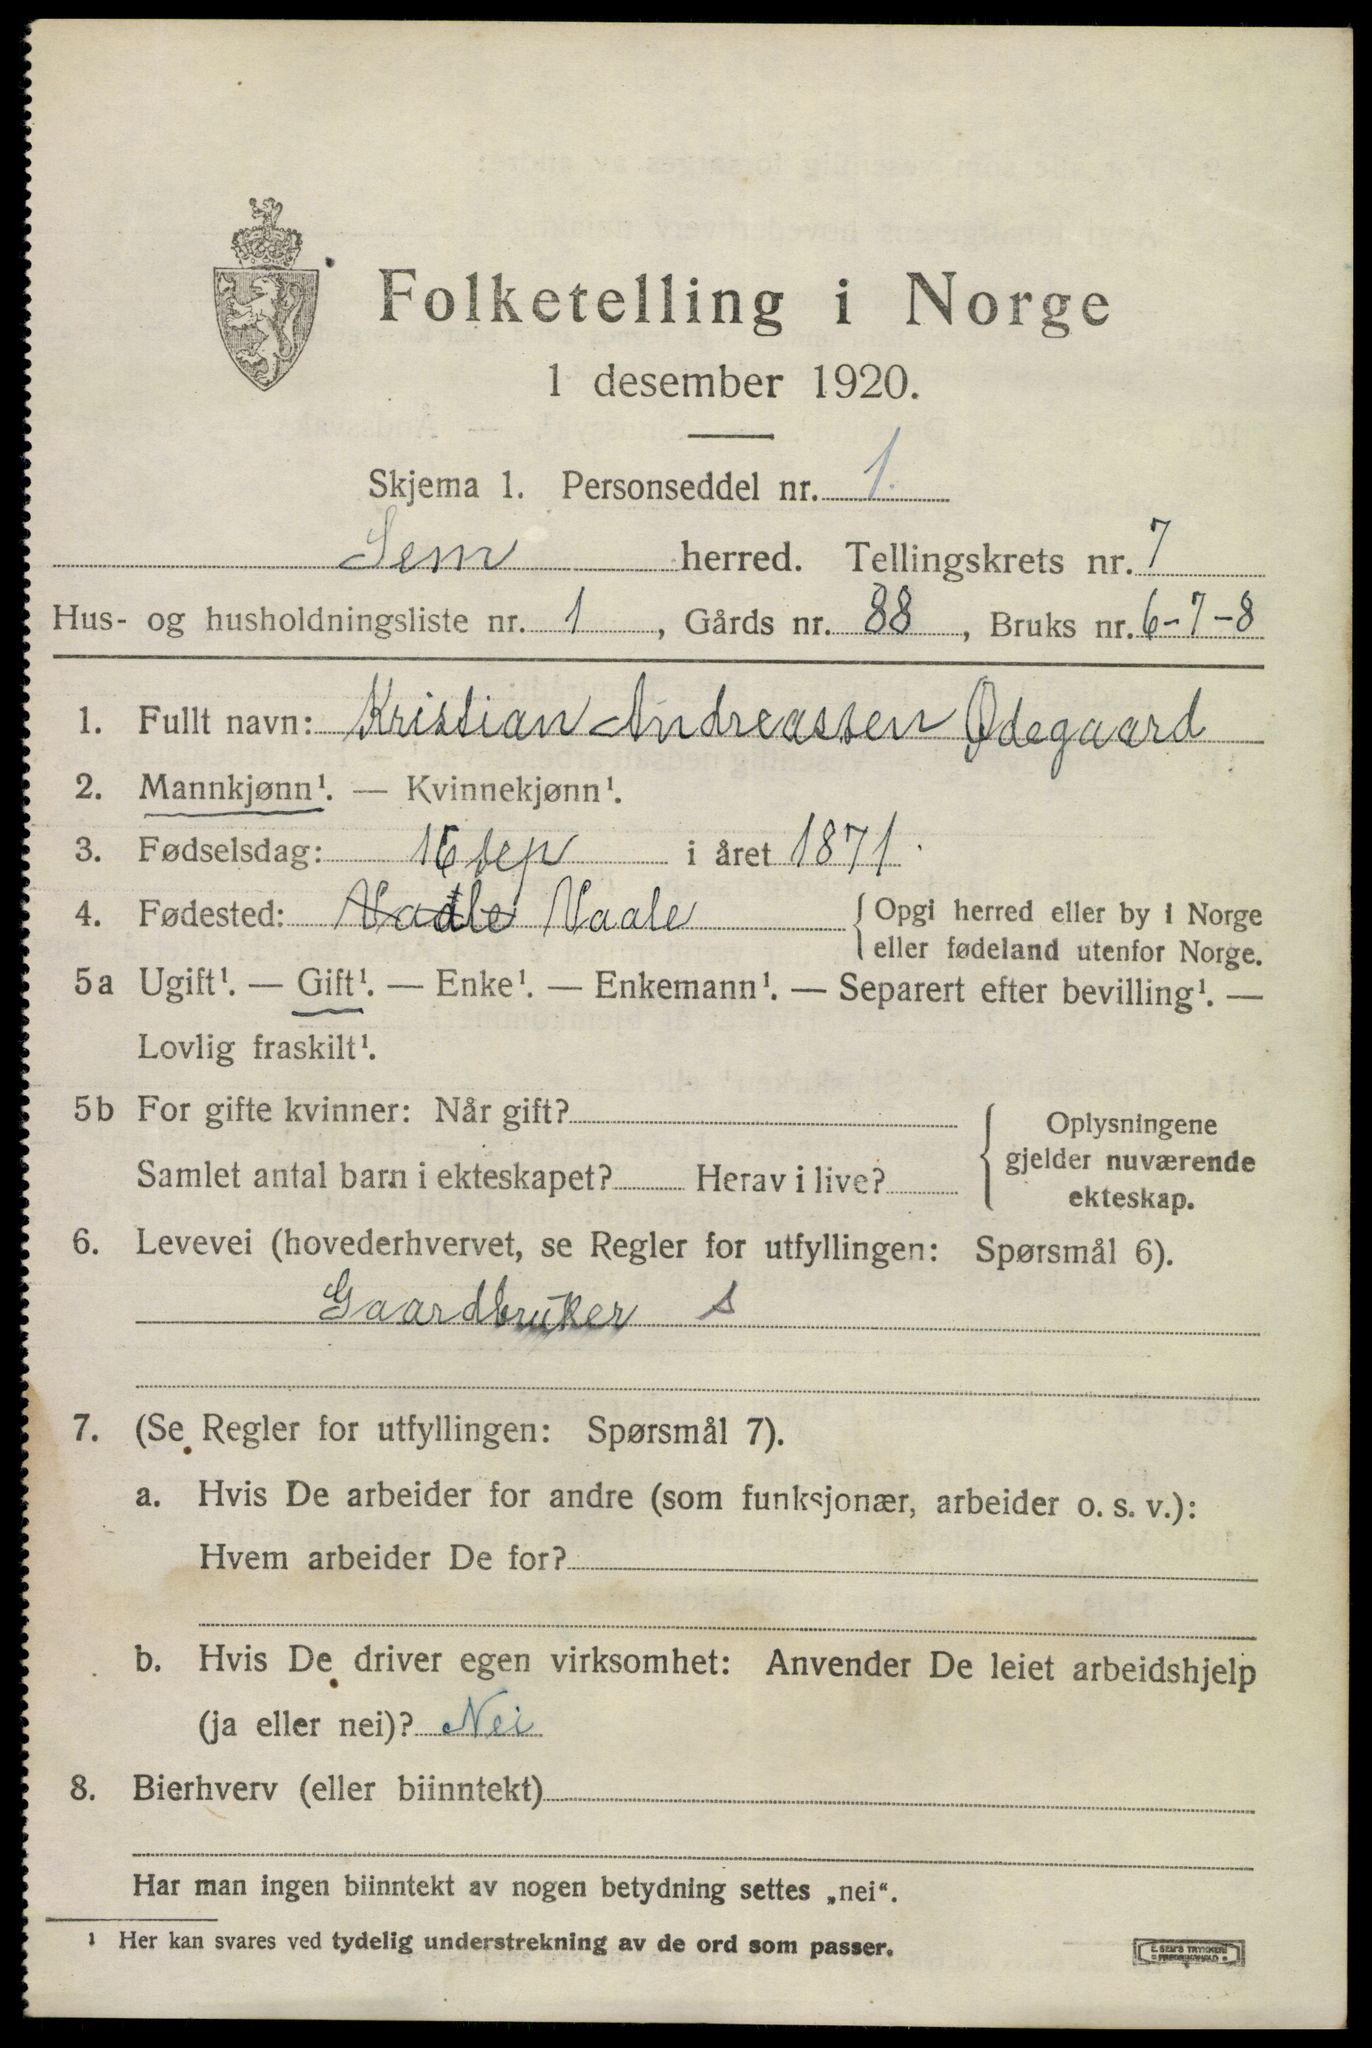 Folketelling i Norge
1 desember 1920.
Skjema 1. Personseddel nr. 1.
Sem herred. Tellingskrets nr. 7
Hus- og husholdningsliste nr. 1, Gårds nr. 88, Bruks nr. 6-7-8
1. Fullt navn: Kristian Andreassen Ødegaard
2. Mannkjønn¹. — Kvinnekjønn¹.
3. Fødselsdag: 16 sep i året 1871.
4. Fødested: Vaale { Opgi herred eller by i Norge
eller fødeland utenfor Norge.
5a Ugift¹. — Gift¹. — Enke¹. — Enkemann¹. — Separert efter bevilling¹. —
Lovlig fraskilt¹.
5b For gifte kvinner: Når gift?
Samlet antal barn i ekteskapet? Herav i live?
{ Oplysningene
gjelder nuværende
ekteskap.
6. Levevei (hovederhvervet, se Regler for utfyllingen: Spørsmål 6).
Gaardbruker s
7. (Se Regler for utfyllingen: Spørsmål 7).
a. Hvis De arbeider for andre (som funksjonær, arbeider o. s. v.):
Hvem arbeider De for?
b. Hvis De driver egen virksomhet: Anvender De leiet arbeidshjelp
(ja eller nei)? Nei
8. Bierhverv (eller biinntekt)
Har man ingen biinntekt av nogen betydning settes „nei“.
¹ Her kan svares ved tydelig understrekning av de ord som passer.
E. SEM'S TRYKKERI
FREDRIKSHALD